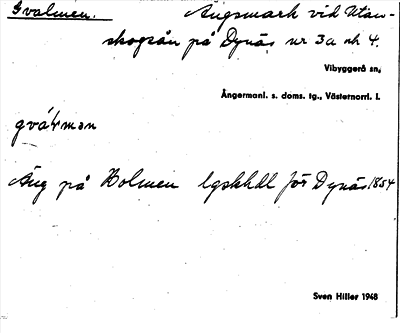 Gvalmen. Ängsmark vid Utan-
skogsån på Dynäs nr 3 och 4.
Vibyggerå sn,
Ångermanl. s. doms. tg., Västernorrl. l.
gvál'mən
Äng på Holmen lgskhdl för Dynäs 1854
Sven Hiller 1948